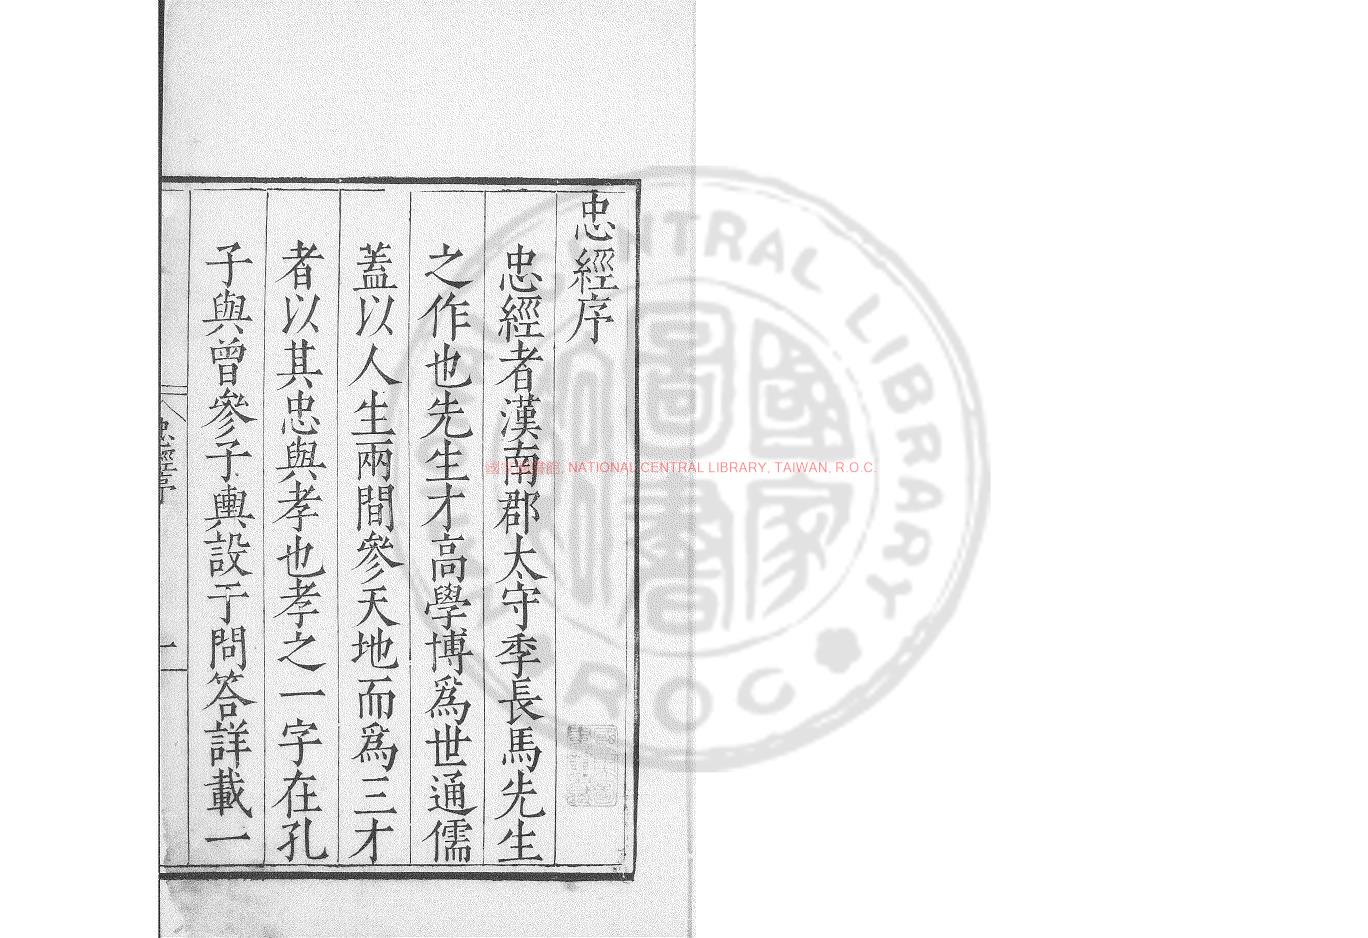 忠經序
忠經者漢南郡太守季長馬先生
之作也先生才高學博爲世通儒
蓋以人生兩間參天地而爲三才
者以其忠與孝也孝之一字在孔
子與曾參子輿設于問答詳載一
忠經序
一
CENTRAL LIBRARY
R.O.C.
國家圖書
國家圖書館, NATIONAL CENTRAL LIBRARY, TAIWAN, R.O.C.